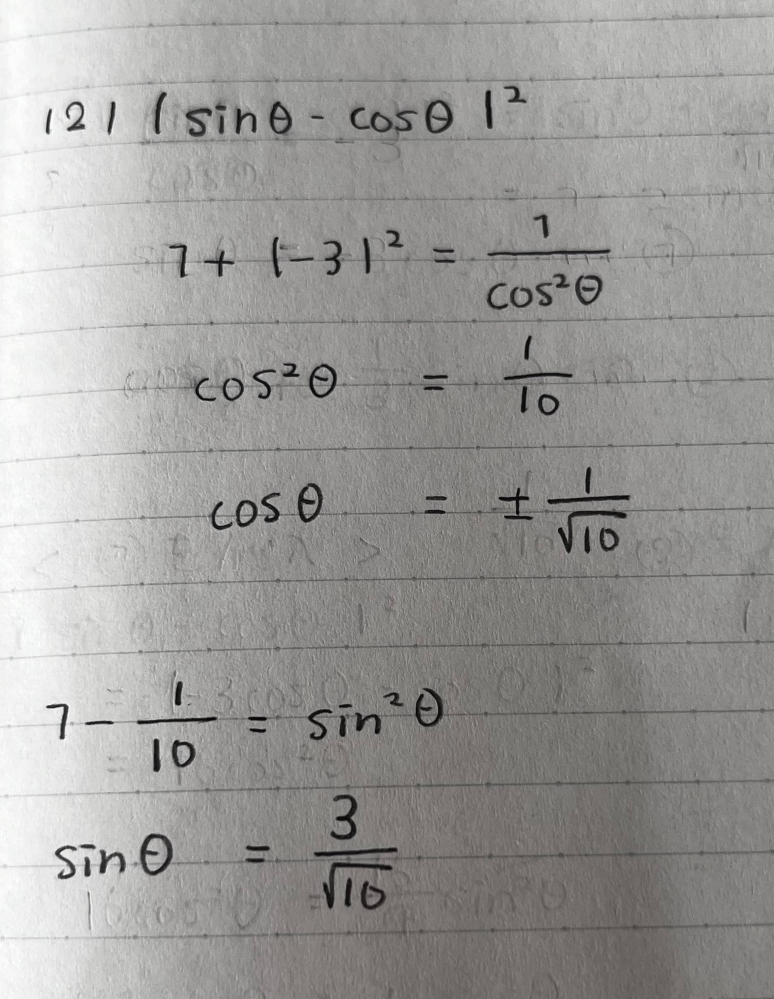 (2) (sinθ - cosθ)²
1 + (-3)² = 1/cos²θ
cos²θ = 1/10
cosθ = ± 1/√10
1 - 1/10 = sin²θ
sinθ = 3/√10